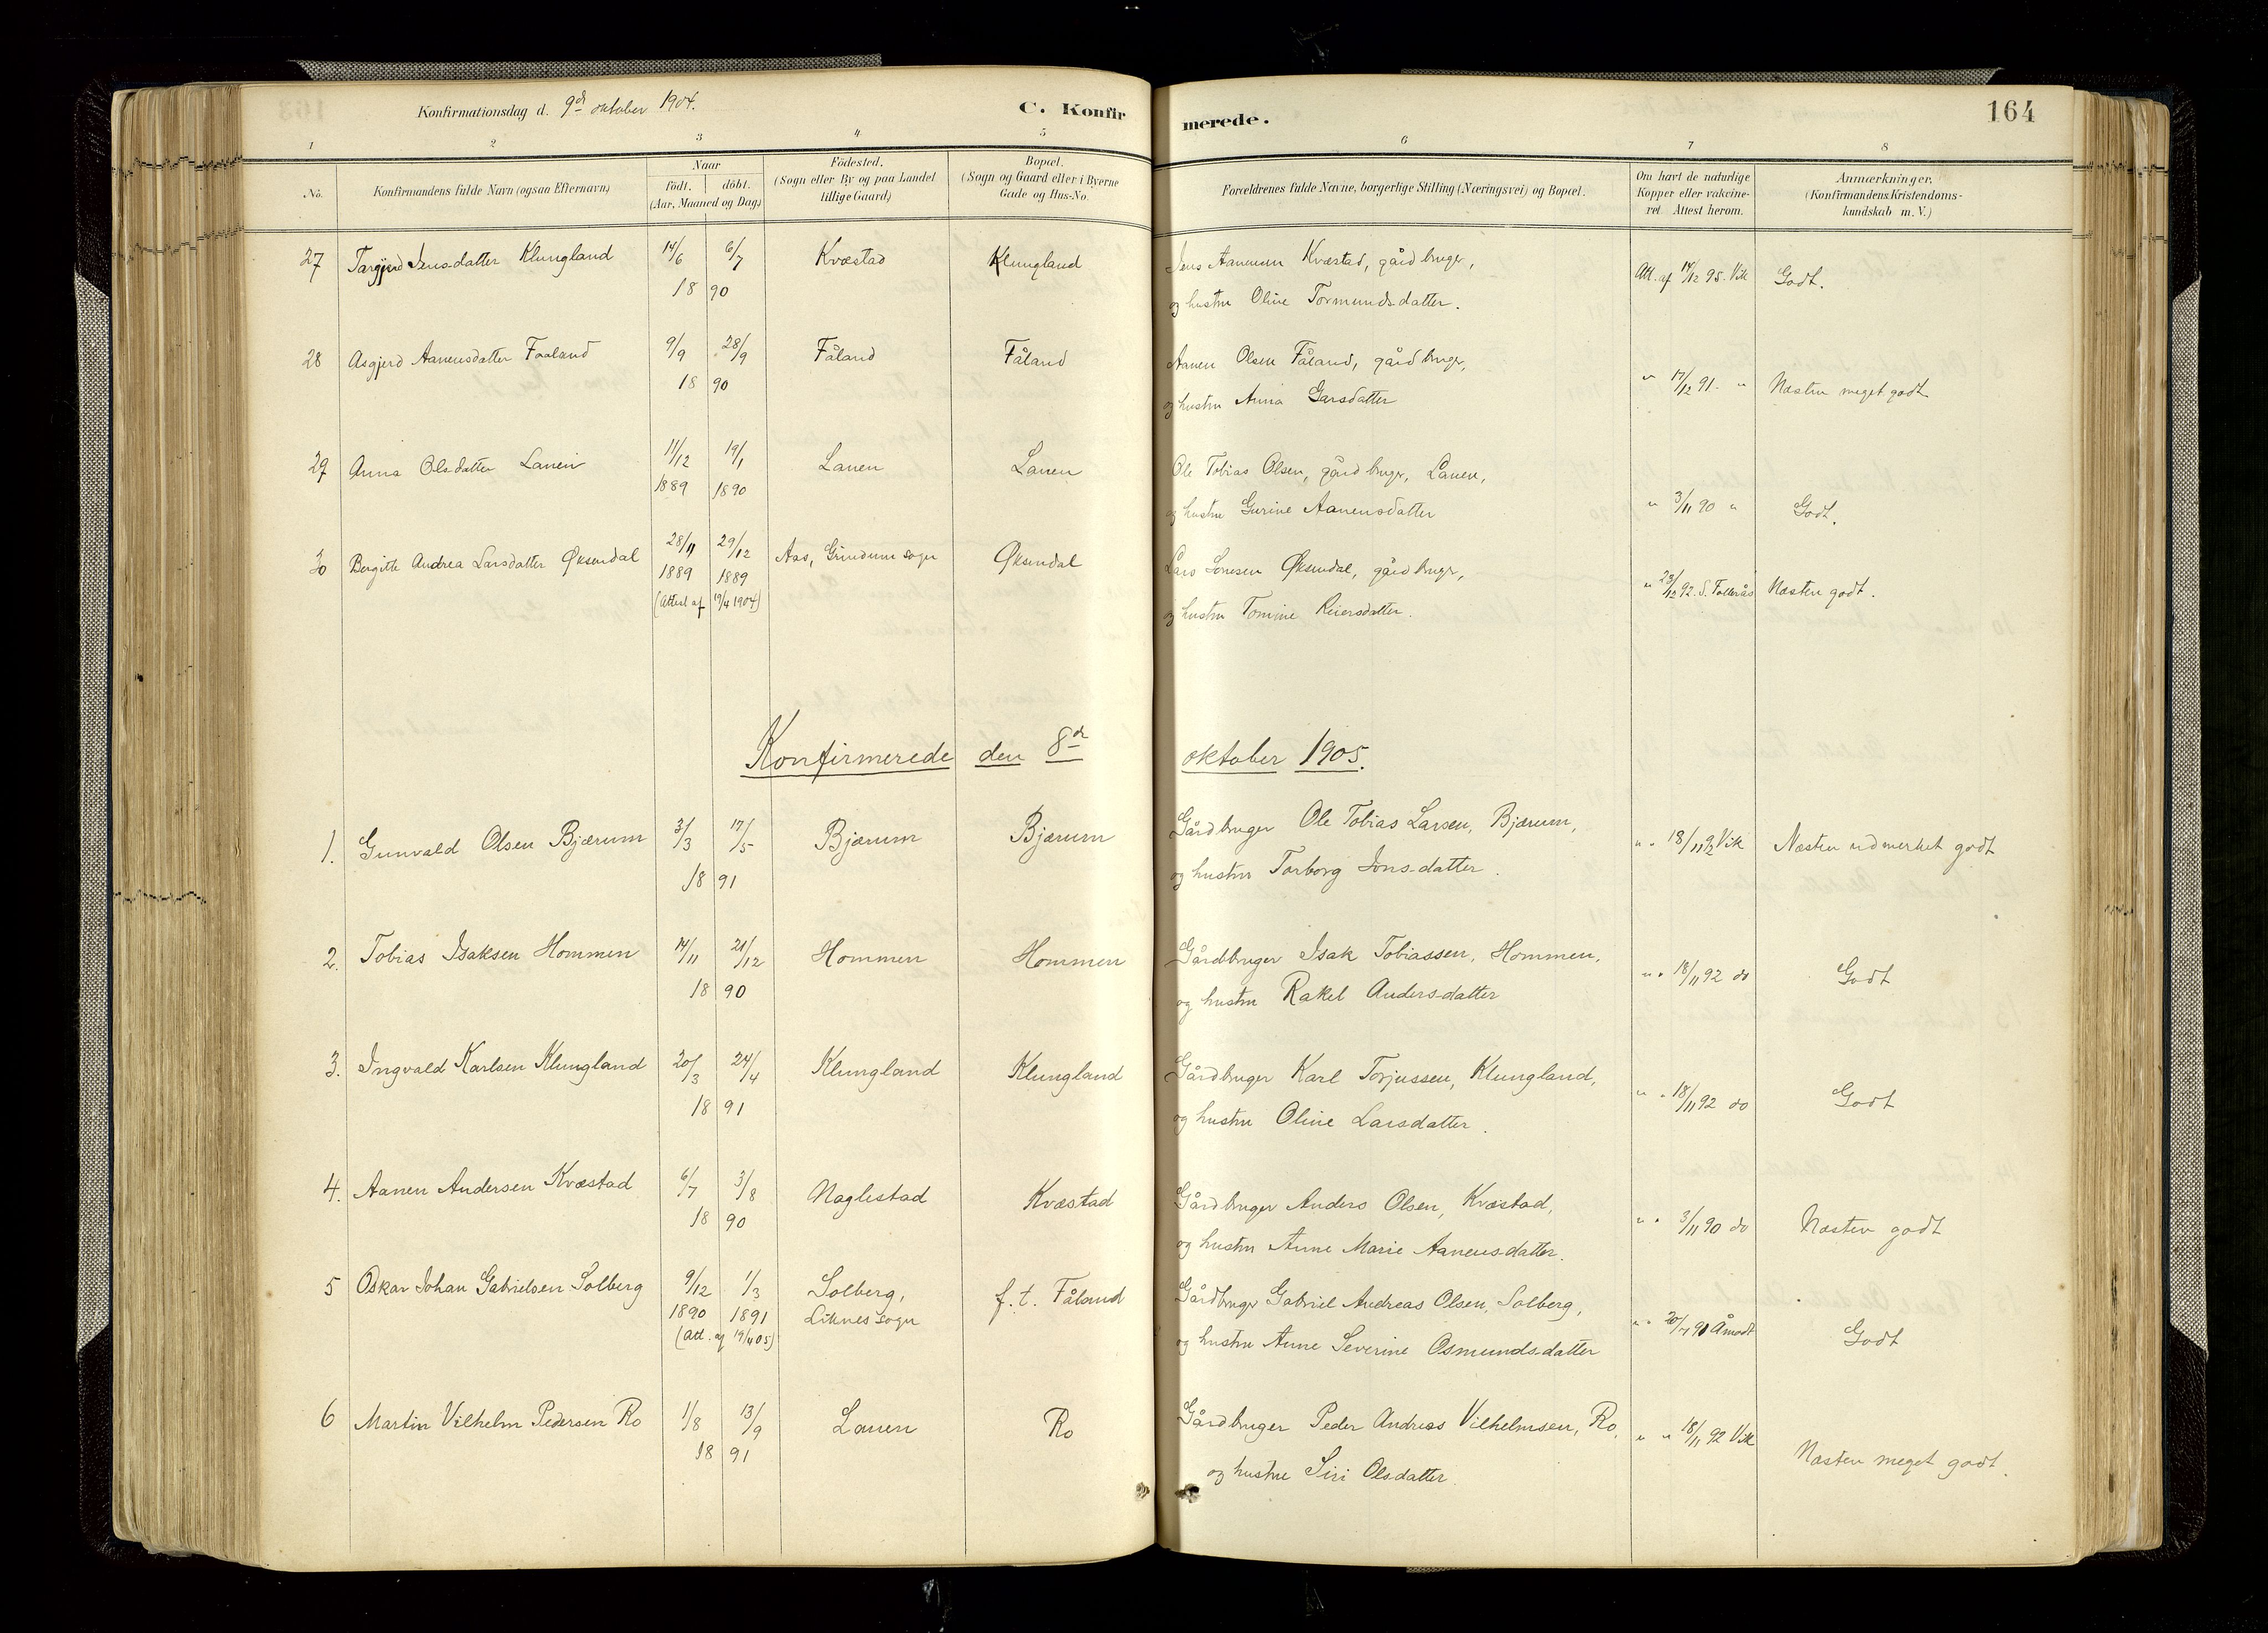 Konfirmationsdag d. 9de oktober 1904.
C. Konfir merede.
164
1 2 3 4 5 6 7 8
No.
Konfirmandens fulde Navn (ogsaa Efternavn)
Naar
født. døbt.
(Aar, Maaned og Dag)
Födested.
(Sogn eller By og paa Landet
tillige Gaard)
Bopæl.
(Sogn og Gaard eller i Byerne
Gade og Hus-No.
Forældrenes fulde Navne, borgerlige Stilling (Næringsvei) og Bopæl.
Om havt de naturlige
Kopper eller vakcine-
ret. Attest herom.
Anmærkninger.
(Konfirmandens Kristendoms-
kundskab m. V.)
27 Targjerd Jensdatter Klungland 14/6 6/7 Kvæstad Klungland Jens Aanensen Kvæstad, gårdbruger, Att. af 14/12 95. Vik Godt.
18 90 og hustru Oline Tormundsdatter.
28 Asgjerd Aanensdatter Faaland 9/9 28/9 Fåland Fåland Aanen Olsen Fåland, gårdbruger,
18 90 og hustru Anna Garsdatter " 17/12 91. " Næsten meget godt
29 Anna Olsdatter Lauen 11/12 19/1 Lauen Lauen Ole Tobias Olsen, gårdbruger, Lauen,
1889 1890 og hustru Gurine Aanensdatter " 3/11 90 " Godt.
30 Bergitte Andrea Larsdatter Øksendal 28/11 29/12 Aas, Grindum sogn Øksendal Lars Jonesen Øksendal, gårdbruger,
1889 1889 " 23/12 92. S. Follerås Næsten godt.
(Attest af 19/4 1904) og hustru Tomine Reiersdatter.
Konfirmerede den 8de oktober 1905.
1. Gunvald Olsen Bjærum 3/3 17/5 Bjærum Bjærum Gårdbruger Ole Tobias Larsen, Bjærum, " " 18/11 92 Vik Næsten udmerket godt
18 91 og hustru Torborg Jonsdatter.
2. Tobias Isaksen Hommen 14/11 21/12 Hommen Hommen Gårdbruger Isak Tobiassen, Hommen,
18 90 og hustru Rakel Andersdatter " " 18/11 92 do Godt
3. Ingvald Karlsen Klungland 20/3 24/4 Klungland Klungland Gårdbruger Karl Torjussen, Klungland,
18 91 og hustru Oline Larsdatter. " " 18/11 92 do Godt
4. Aanen Andersen Kvæstad 6/7 3/8 Naglestad Kvæstad Gårdbruger Anders Olsen, Kvæstad,
18 90 og hustru Anne Marie Aanensdatter. " " 3/11 90 do Næsten godt
5 Oskar Johan Gabrielsen Solberg 9/12 1/3 Solberg, f. t. Fåland Gårdbruger Gabriel Andreas Olsen, Solberg,
1890 1891 Liknes sogn " " 20/7 91 Åmodt Godt
(Att. af 19/4 05) og hustru Anne Severine Osmundsdatter
6 Martin Vilhelm Pedersen Ro 1/8 13/9 Lauen Ro Gårdbruger Peder Andreas Vilhelmsen, Ro, " " 18/11 92 Vik
18 91 og hustru Siri Olsdatter. Næsten meget godt.